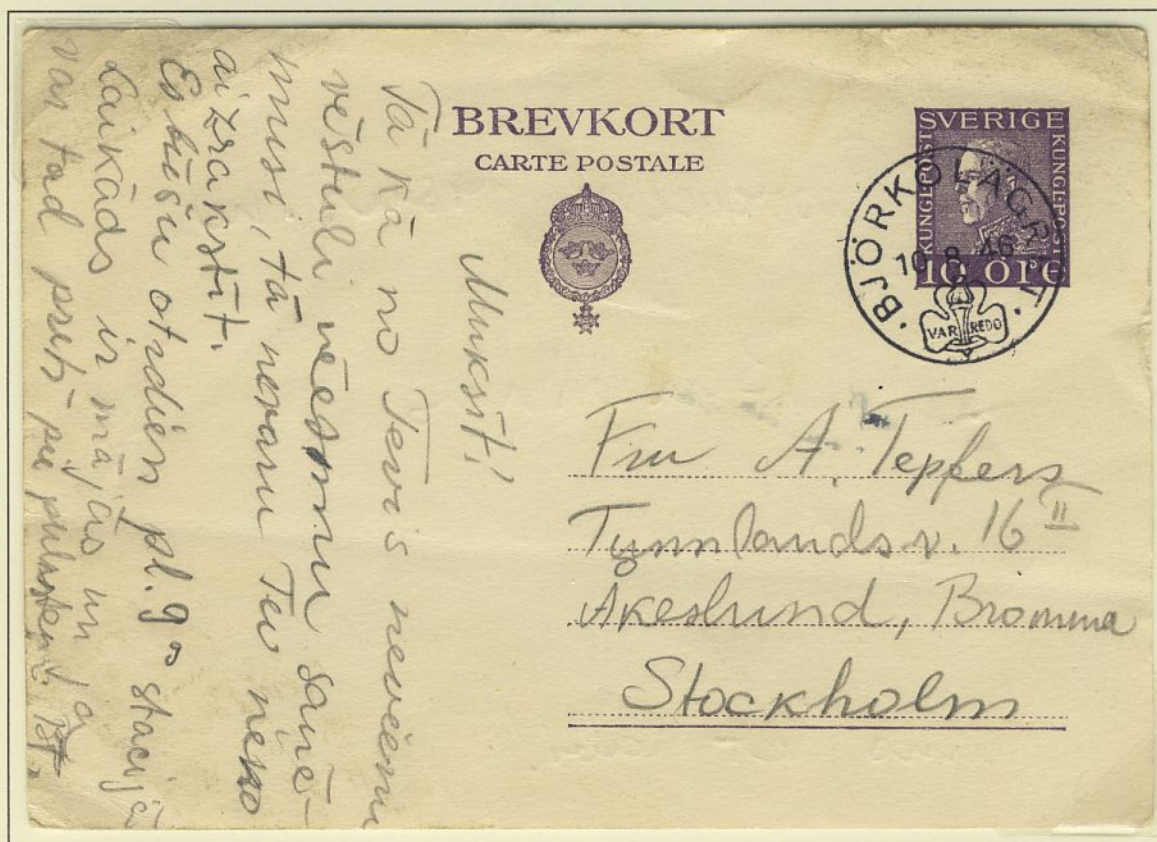 BREVKORT
CARTE POSTALE
SVERIGE
KUNGL·POST
KUNGL·POST
10 ÖRE
BJÖRKÖLÄGRET
10.8.46
VAR REDO
Fru A. Tepfers
Tunnlandsv. 16 II
Åkeslund, Bromma
Stockholm
Muksīt!
Tā kā no Tevis nevienu
vēstuli neesmu saņē-
musi, tā nevaru Tev neko
aizrakstīt.
Es būšu otrdien pl. 9°° stacijā
ir mājās un
var tad pretī pie